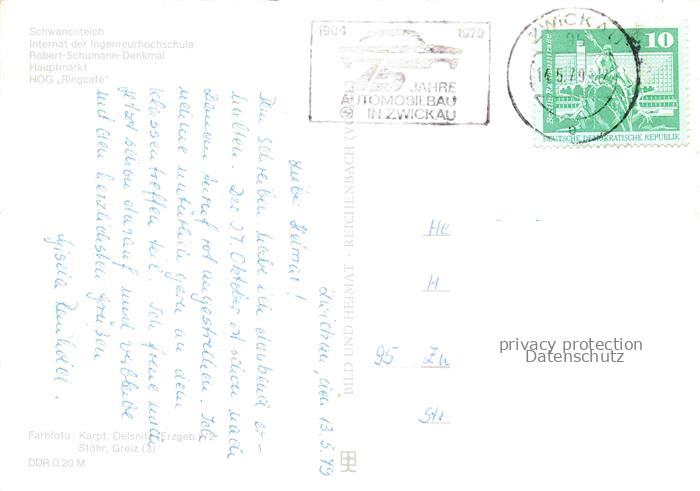 Schwanenteich
Internat der Ingenieurhochschule
Robert-Schumann-Denkmal
Hauptmarkt
HOG „Ringcafé"
1904 1979
75 JAHRE
AUTOMOBILBAU
IN ZWICKAU
ZWICKAU
95
14.5.79
Berlin-Rathausstraße
10
DEUTSCHE DEMOKRATISCHE REPUBLIK
Zwickau, den 13.5.79
Lieber Helmar!
Dein Schreiben habe ich dankend er-
halten. Der 27. Oktober ist schon nach
Deinem Anruf rot angestrichen. Ich
nehme natürlich gern an dem
Klassentreffen teil. Ich freue mich
jetzt schon darauf und verbleibe
mit den herzlichsten Grüßen
Gisela
BILD UND HEIMAT · REICHENBACH
He
H
95 Zw
Str
privacy protection
Datenschutz
Farbfoto: Karpf, Oelsnitz/Erzgeb.
Stöhr, Greiz (3)
DDR 0,20 M